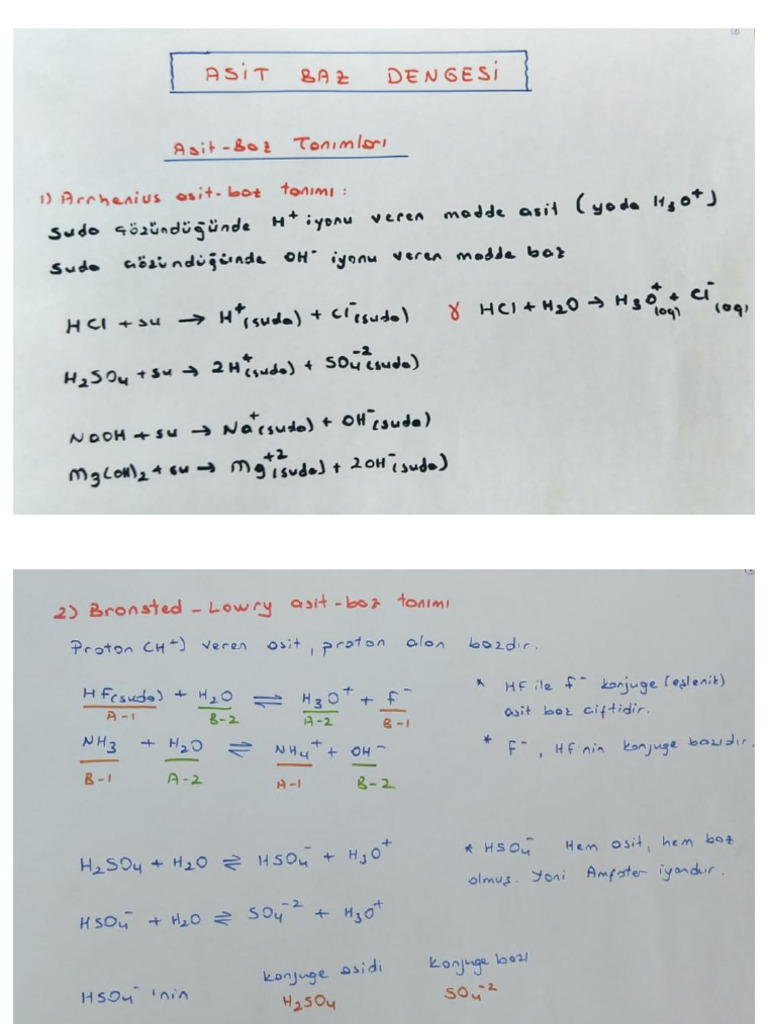 ASİT BAZ DENGESİ
Asit-Baz Tanımları
1) Arrhenius asit-baz tanımı:
Suda çözündüğünde H⁺ iyonu veren madde asit (yada H₃O⁺)
Suda çözündüğünde OH⁻ iyonu veren madde baz
HCl + su → H⁺(suda) + Cl⁻(suda) HCl + H₂O → H₃O⁺(aq) + Cl⁻(aq)
H₂SO₄ + su → 2H⁺(suda) + SO₄⁻²(suda)
NaOH + su → Na⁺(suda) + OH⁻(suda)
Mg(OH)₂ + su → Mg⁺²(suda) + 2OH⁻(suda)
2) Bronsted-Lowry asit-baz tanımı
Proton (H⁺) veren asit, proton alan bazdır.
HF(suda) + H₂O ⇌ H₃O⁺ + F⁻
A-1 B-2 A-2 B-1
* HF ile F⁻ konjuge (eşlenik)
asit baz çiftidir.
NH₃ + H₂O ⇌ NH₄⁺ + OH⁻
B-1 A-2 A-1 B-2
* F⁻, HF'nin konjuge bazıdır.
H₂SO₄ + H₂O ⇌ HSO₄⁻ + H₃O⁺
* HSO₄⁻ Hem asit, hem baz
olmuş. Yani Amfoter iyondur.
HSO₄⁻ + H₂O ⇌ SO₄⁻² + H₃O⁺
konjuge asidi konjuge bazı
HSO₄⁻'nin H₂SO₄ SO₄⁻²